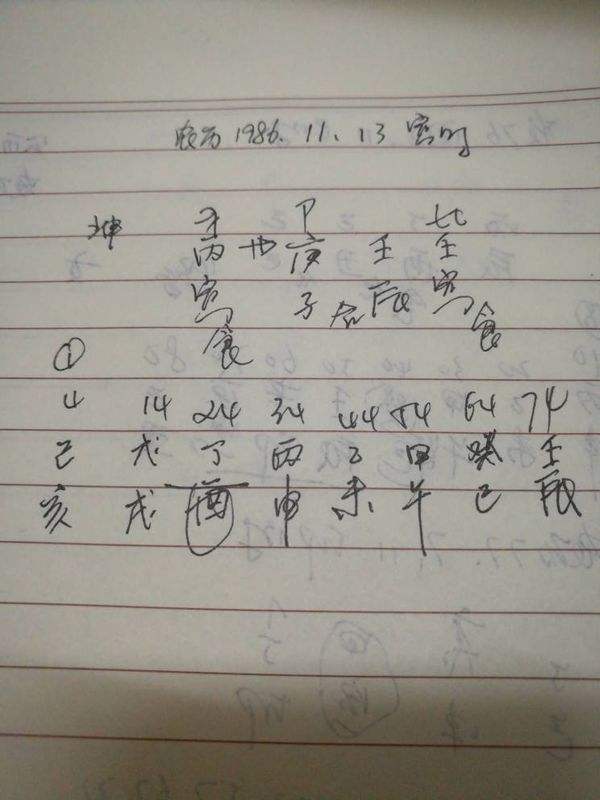 农历1986. 11. 13 寅时
才 P 比
坤 丙 庚 壬 壬
寅 子 合 辰 寅
食 食
①
4 14 24 34 44 54 64 74
己 戊 丁 丙 乙 甲 癸 壬
亥 戌 酉 申 未 午 巳 辰